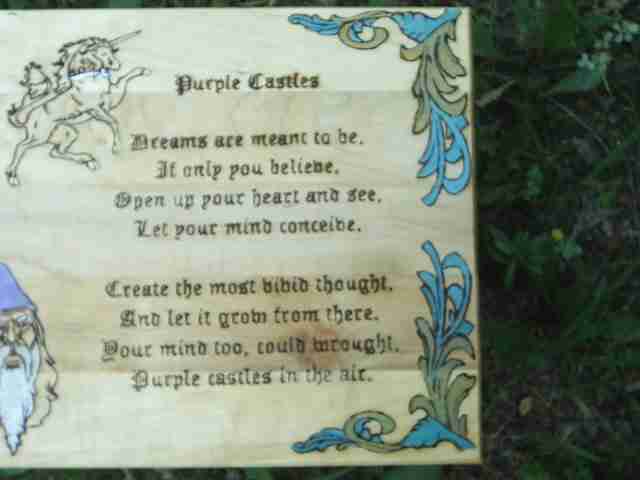 Purple Castles
Dreams are meant to be,
If only you believe,
Open up your heart and see,
Let your mind conceive.
Create the most vivid thought,
And let it grow from there.
Your mind too, could wrought,
Purple castles in the air.